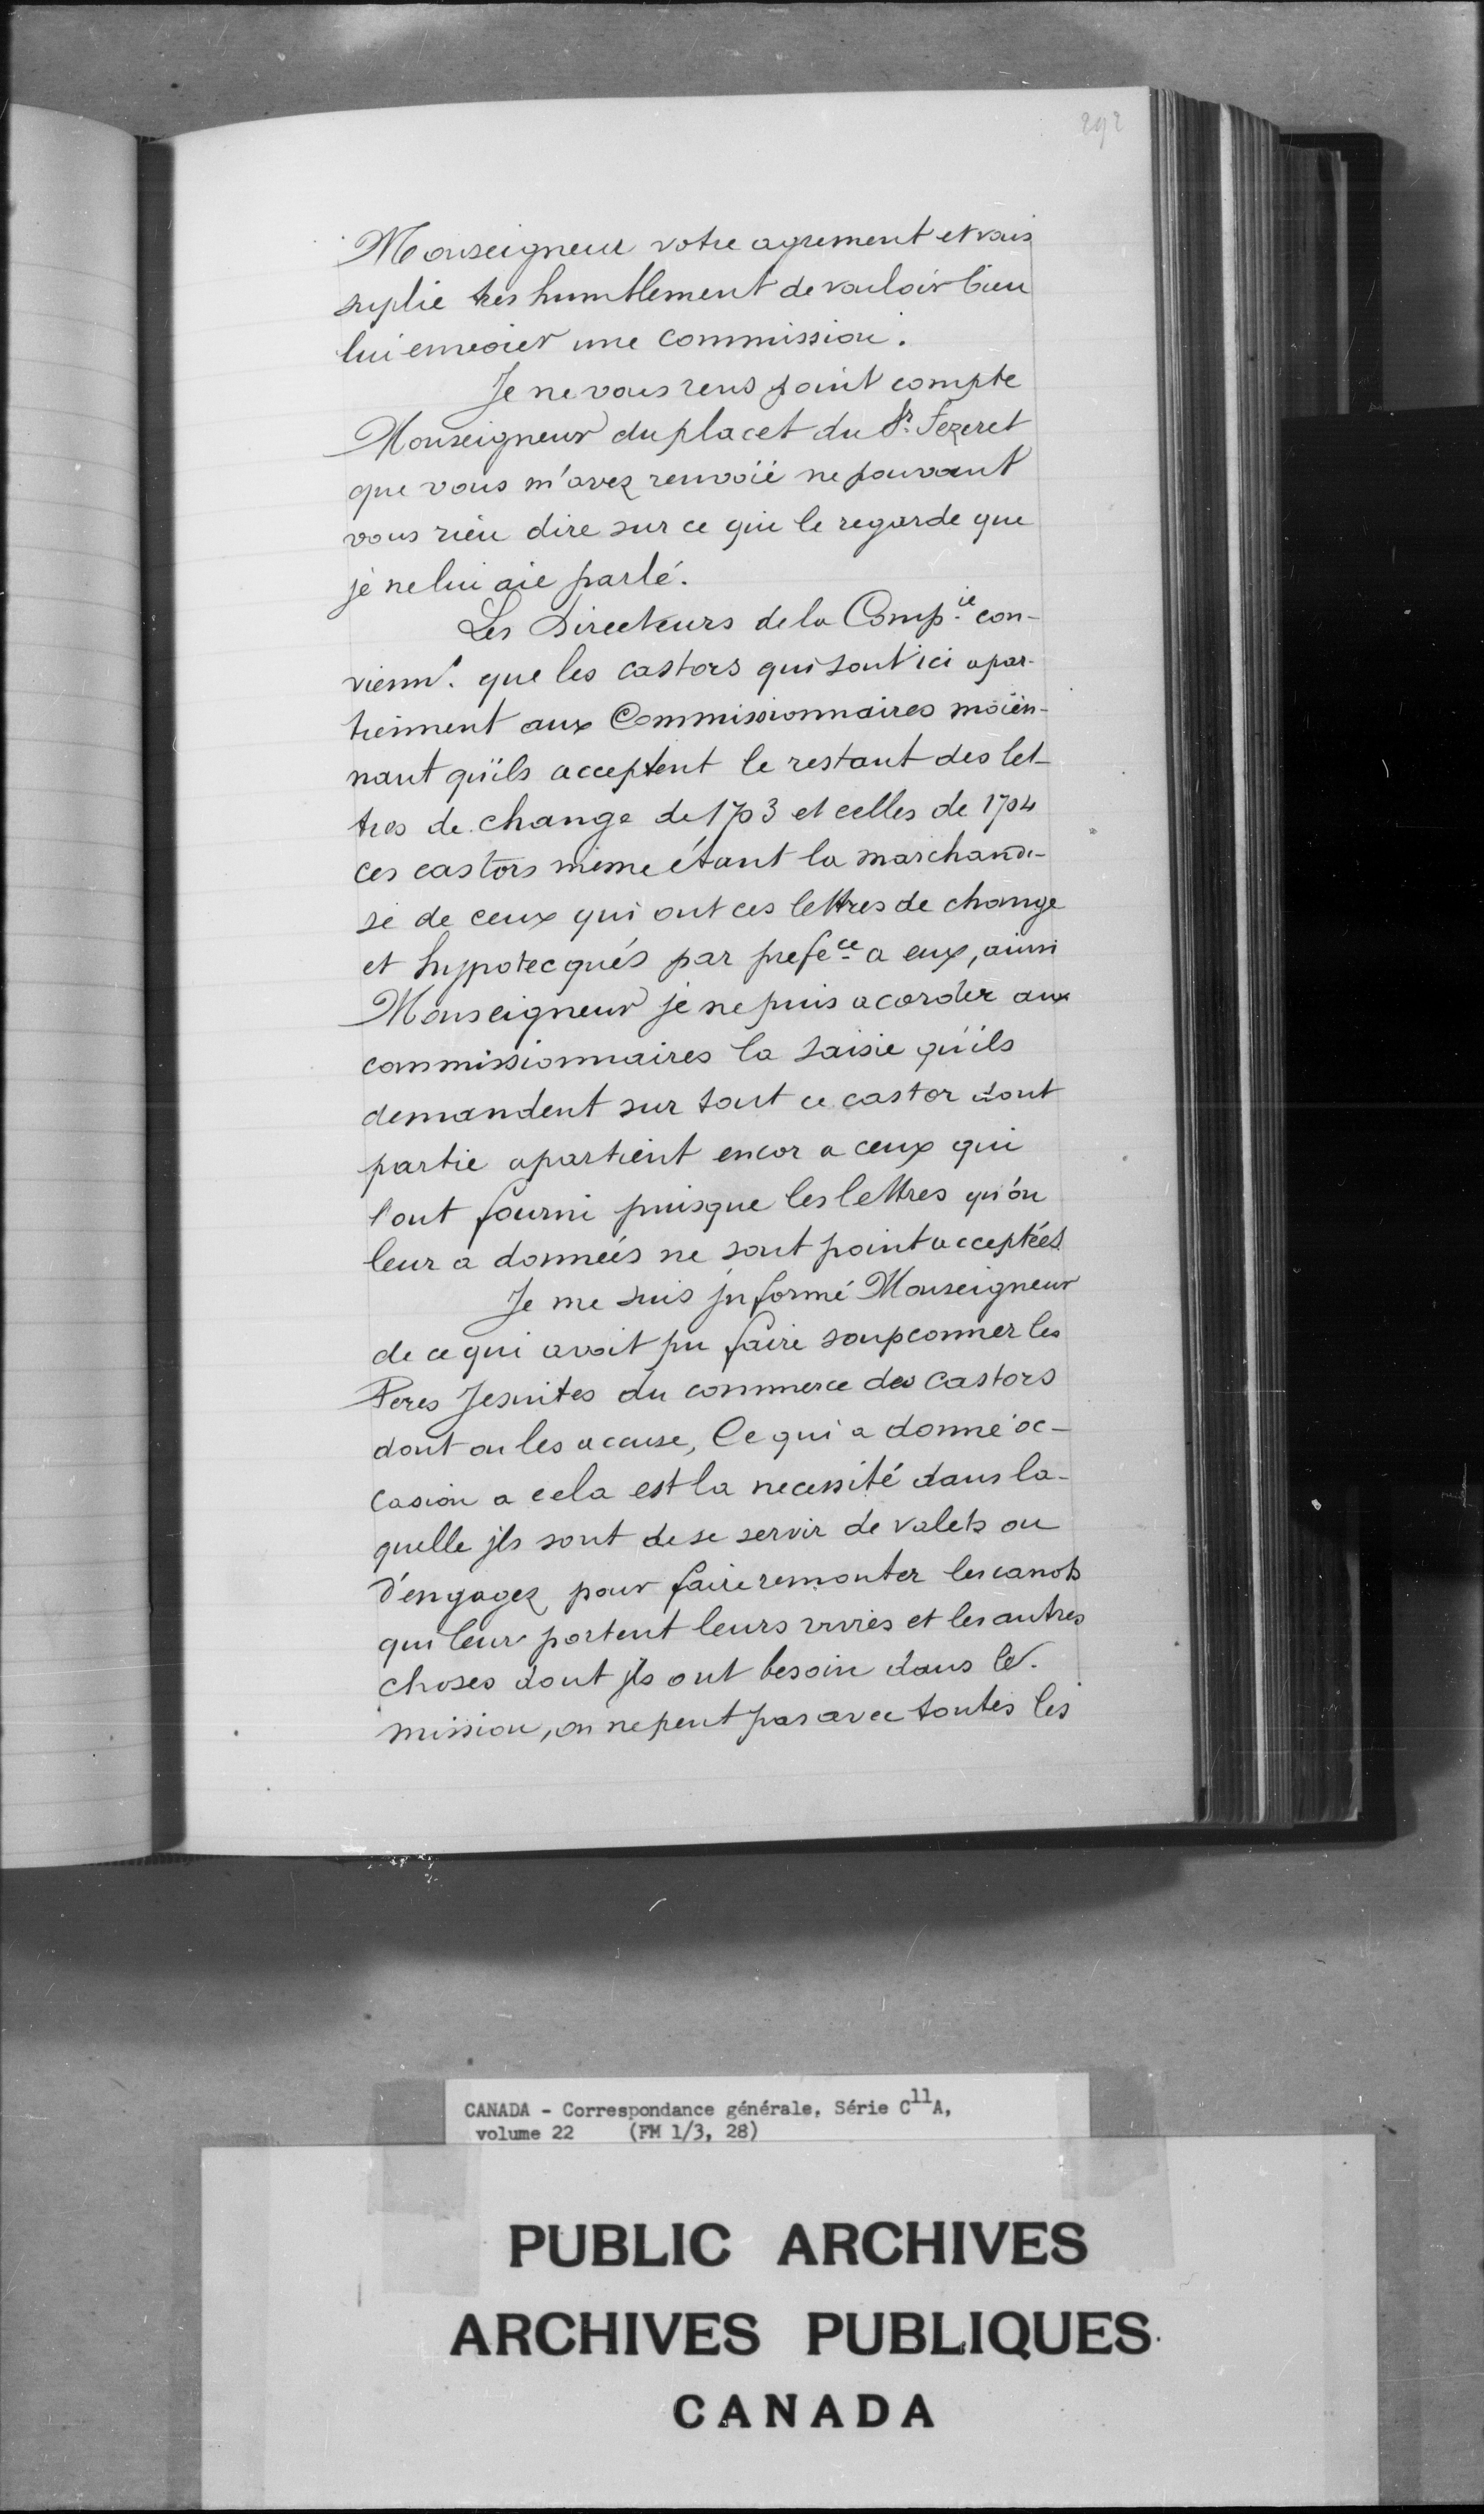 292
Monseigneur votre agrement et vous
suplie tres humblement de vouloir bien
lui envoier une commission.
Je ne vous rens point compte
Monseigneur du placet du Sr. Fezeret
que vous m'avez renvoïé ne pouvant
vous rien dire sur ce qui le regarde que
je ne lui aie parlé.
Les Directeurs de la Comp.ie con-
vienn.t que les castors qui sont ici apar-
tiennent aux Commissionnaires moïen-
nant qu'ils acceptent le restant des let-
tres de change de 1703 et celles de 1704
ces castors même étant la marchandi-
se de ceux qui ont ces lettres de change
et hypotecqués par prefe.ce a eux, ainsi
Monseigneur je ne puis acorder aux
commissionnaires la saisie qu'ils
demandent sur tout ce castor dont
partie apartient encor a ceux qui
l'ont fourni puisque les lettres qu'on
leur a données ne sont point acceptées
Je me suis jnformé Monseigneur
de ce qui avoit pu faire soupconner les
Peres Jesuites du commerce des castors
dont on les accuse, Ce qui a donné oc-
casion a cela est la necessité dans la-
quelle jls sont de se servir de valets ou
d'engagez pour faire remonter les canots
qui leur portent leurs vivres et les autres
choses dont jls ont besoin dans le.
mission, on ne peut pas avec toutes les
CANADA - Correspondance générale, Série C11A,
volume 22 (FM 1/3, 28)
PUBLIC ARCHIVES
ARCHIVES PUBLIQUES
CANADA